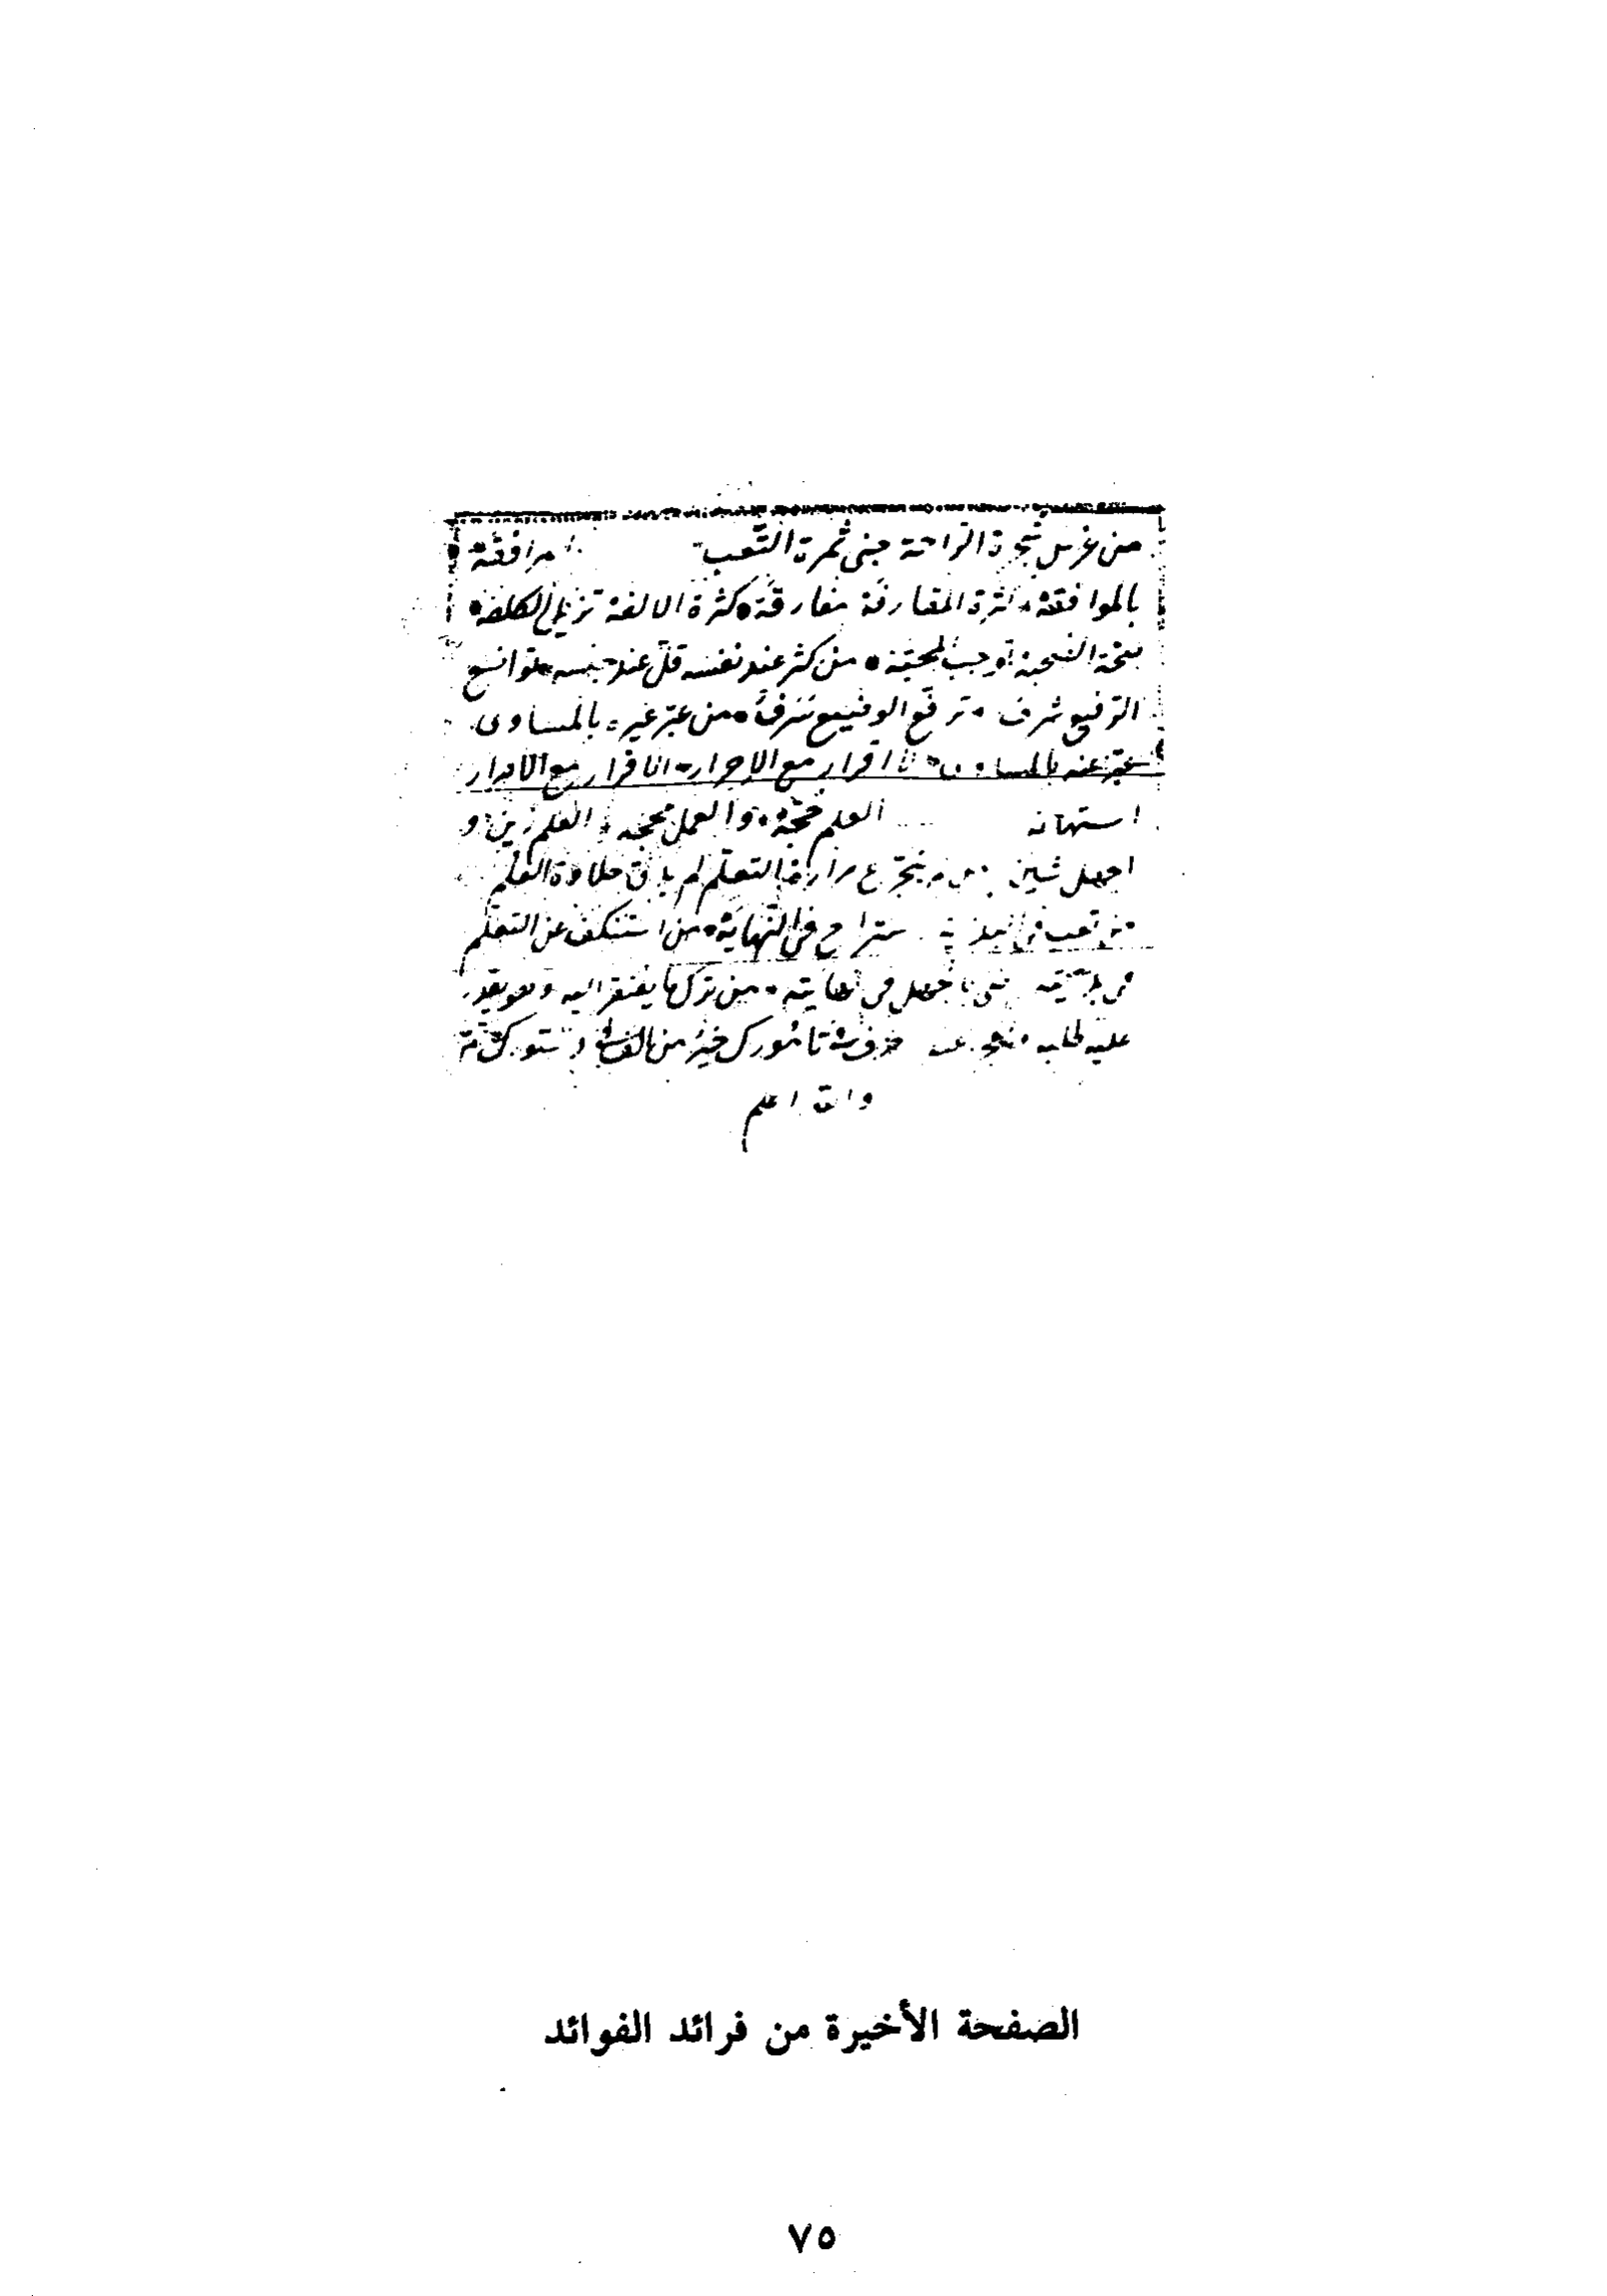 من غرس شجرة الراحة جنى ثمرة التعب مرافقة
بالموافقة كثرة المقارنة مفارقة كثرة الالفة تزيل الكلفة
الصحبة توجب المحبة من كثر عند نفسه قل عند جنسه تواضع
الرفيع شرف ترفع الوضيع سرف من عير غيره بالمساوى
عبر عنه بالمساوى لا اقرار مع الاجرار لا قرار مع
استهانه العلم حجة والعمل محجة العلم زين و
الجهل شين من لم يتجرع مرارة التعلم لم يذق حلاوة العلم
من تعب فى البداية استراح فى النهاية من استنكف عن التعلم
فى بدايته بالجهل فى نهايته من ترك ما يفتقر اليه وهو يقدر
عليه لطلبه خير من
والله اعلم
الصفحة الأخيرة من فرائد الفوائد
٧٥